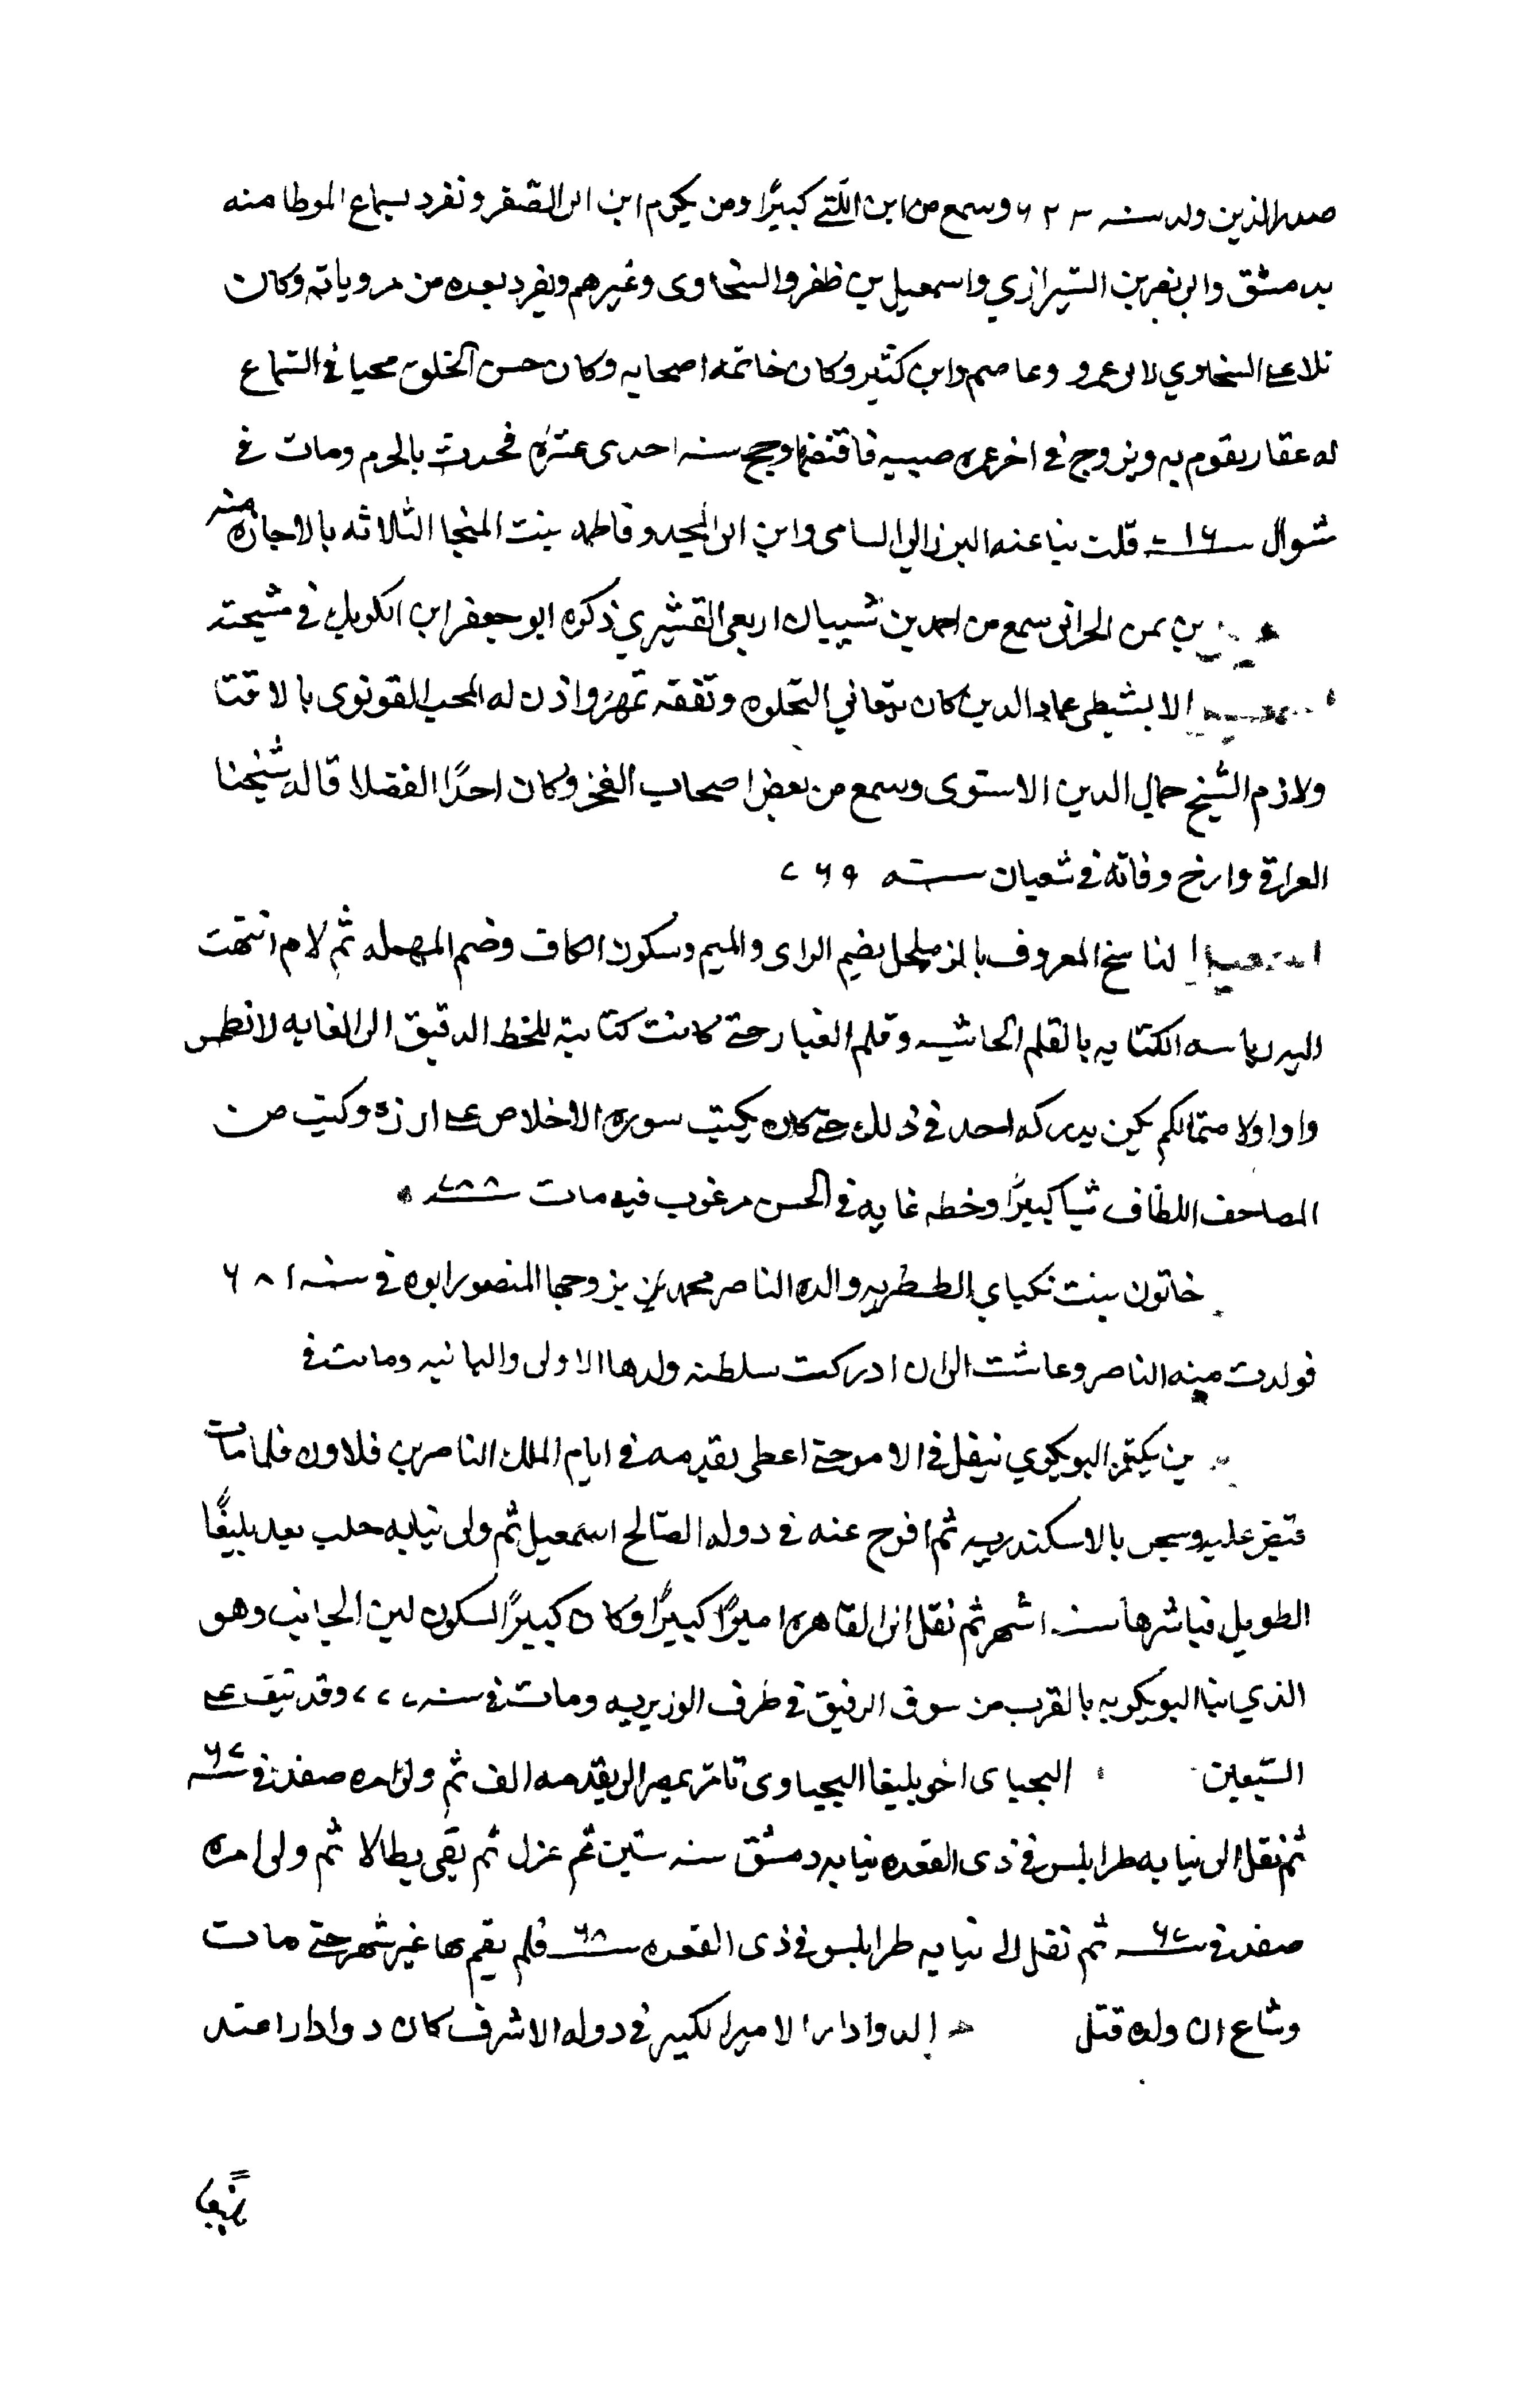 صدر الدين ولد سنه ٦٢٣ وسمع من ابن اللتي كبيرًا ومن مكرم ابن ابي الصقر وتفرد بسماع الموطا منه
بدمشق وابي نصر بن الشيرازي واسمعيل بن ظفر والسخاوى وغيرهم وتفرد بعده من مروياته وكان
تلا على السخاوي لابي عمرو وعاصم وابن كثير وكان خاتمه اصحابه وكان حسن الخلق محبا في السماع
له عقار يقوم به وتزوج في اخر عمره صبيه فاقتضها وحج سنه احدى عشره فحدث بالحرم ومات في
شوال سنة ٧١٦ قلت ثنا عنه البرزالي السامى وابن ابي المجد وفاطمه بنت المنجا الثلاثه بالاجازه منه
بن يمن الحراني سمع من احمد بن شيبان اربعى القشيري ذكره ابو جعفر ابن الكويك في مشيخته
الابشيطى عماد الدين كان يعاني التحلوه وتفقه تمهر واذن له المحب القونوى بالافتا
ولازم الشيخ جمال الدين الاسنوى وسمع من بعض اصحاب الفخر وكان احدًا الفضلا قاله شيخنا
العراقي وارخ وفاته في شعبان سنه ٧٦٩
الناسخ المعروف بالزمكحل بضم الزاى والميم وسكون الكاف وضم المهمله ثم لام انتهت
اليه رياسه الكتابه بالقلم الحاشيه وقلم الغبار حتى كانت كتابته للخط الدقيق الى الغايه لا نطمس
واوا ولا متمالكم يكن يدركه احد في ذلك حتى كان يكتب سوره الاخلاص على ارزه وكتب من
المصاحف اللطاف شيا كبيرًا وخطه غايه في الحسن مرغوب فيه مات سنه ٧٨٨
خاتون بنت نكباي الططريه والده الناصر محمد بن تزوجها المنصور ابوه في سنه ٦٨١
فولدت منه الناصر وعاشت الى ان ادركت سلطنه ولدها الاولى والثانيه وماتت في
بن بكتمر البوبكري تنقل في الامر حتى اعطى تقدمه في ايام الملك الناصر بن قلاون فلما مات
قبض عليه وسجن بالاسكندريه ثم افرج عنه في دوله الصالح اسمعيل ثم ولى نيابه حلب بعد يلبغًا
الطويل فباشرها سنه اشهر ثم نقل الى القاهره اميرًا كبيرًا وكان كبيرًا لسكون لين الجانب وهو
الذي بنا البوبكريه بالقرب من سوق الرقيق في طرف الوزيريه ومات في سنه ٧٧٧ وقد نيف على
السبعين اليحياى اخو يلبغا اليحياوى تامر بمصر الى تقدمه الف ثم ولى امره صفد في سنه ٧٦
ثم نقل الى نيابه طرابلس في ذى القعده نيابه دمشق سنه ستين ثم عزل ثم بقى بطالا ثم ولى امره
صفد في سنه ٧٦ ثم نقل الى نيابه طرابلس في ذى القعده سنه ٦٨ فلم يقم بها غير شهر حتى مات
وشاع ان ولده قتل الدوادار الامير الكبير في دوله الاشرف كان دوادارا عند
يلبغا